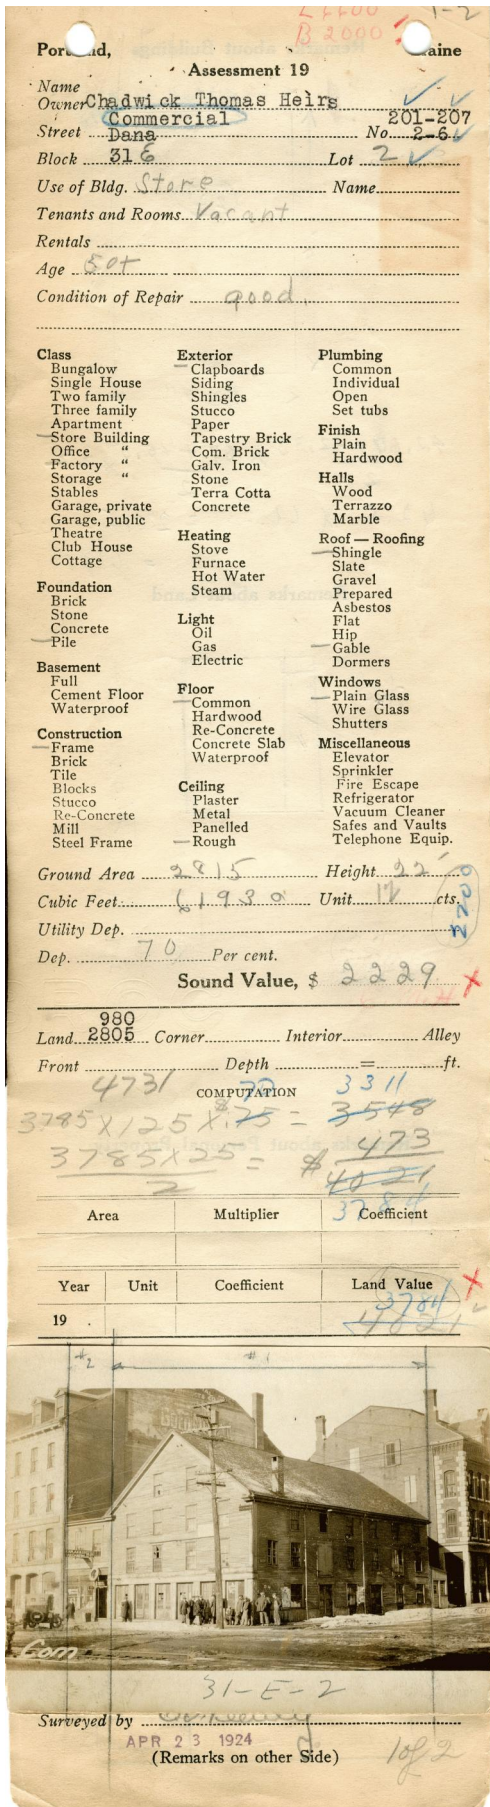 L 1100
B 2000
1-2
Portland, Maine
Assessment 19
Name
Owner Chadwick Thomas Heirs
Commercial 201-207
Street Dana No. 2-6
Block 31 E Lot 2
Use of Bldg. Store Name
Tenants and Rooms Vacant
Rentals
Age 50+
Condition of Repair good.
Class
Bungalow
Single House
Two family
Three family
Apartment
Store Building
Office "
Factory "
Storage "
Stables
Garage, private
Garage, public
Theatre
Club House
Cottage
Foundation
Brick
Stone
Concrete
Pile
Basement
Full
Cement Floor
Waterproof
Construction
Frame
Brick
Tile
Blocks
Stucco
Re-Concrete
Mill
Steel Frame
Exterior
Clapboards
Siding
Shingles
Stucco
Paper
Tapestry Brick
Com. Brick
Galv. Iron
Stone
Terra Cotta
Concrete
Heating
Stove
Furnace
Hot Water
Steam
Light
Oil
Gas
Electric
Floor
Common
Hardwood
Re-Concrete
Concrete Slab
Waterproof
Ceiling
Plaster
Metal
Panelled
Rough
Plumbing
Common
Individual
Open
Set tubs
Finish
Plain
Hardwood
Halls
Wood
Terrazzo
Marble
Roof — Roofing
Shingle
Slate
Gravel
Prepared
Asbestos
Flat
Hip
Gable
Dormers
Windows
Plain Glass
Wire Glass
Shutters
Miscellaneous
Elevator
Sprinkler
Fire Escape
Refrigerator
Vacuum Cleaner
Safes and Vaults
Telephone Equip.
Ground Area 2815 Height 22'
Cubic Feet 61930 Unit 12 cts.
2200
Utility Dep.
Dep. 70 Per cent.
Sound Value, $ 2229
980
Land 2805 Corner Interior Alley
Front Depth = ft.
4731 COMPUTATION 70 3311
3785 X 125 X .75 = 3548
3785 X 25 = $ 473
2 4021
3784
Area Multiplier Coefficient
Year Unit Coefficient Land Value
3784
19 . 4021
#2 #1
Com
31-E-2
Surveyed by
APR 23 1924
(Remarks on other Side)
1 of 2